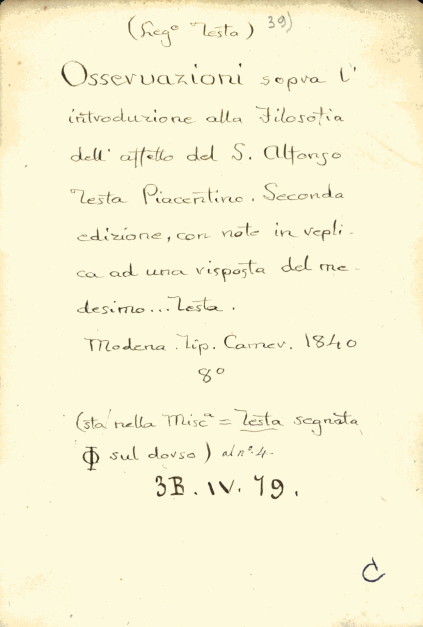 (Leg.º Testa) 39)
Osservazioni sopra l'
introduzione alla Filosofia
dell' affetto del S. Alfonso
Testa Piacentino. Seconda
edizione, con note in repli-
ca ad una risposta del me-
desimo... Testa.
Modena. Tip. Camer. 1840
8º
(sta nella Misc.ª = Testa segnata
Φ sul dorso) al nº. 4.
3B. IV. 79.
C